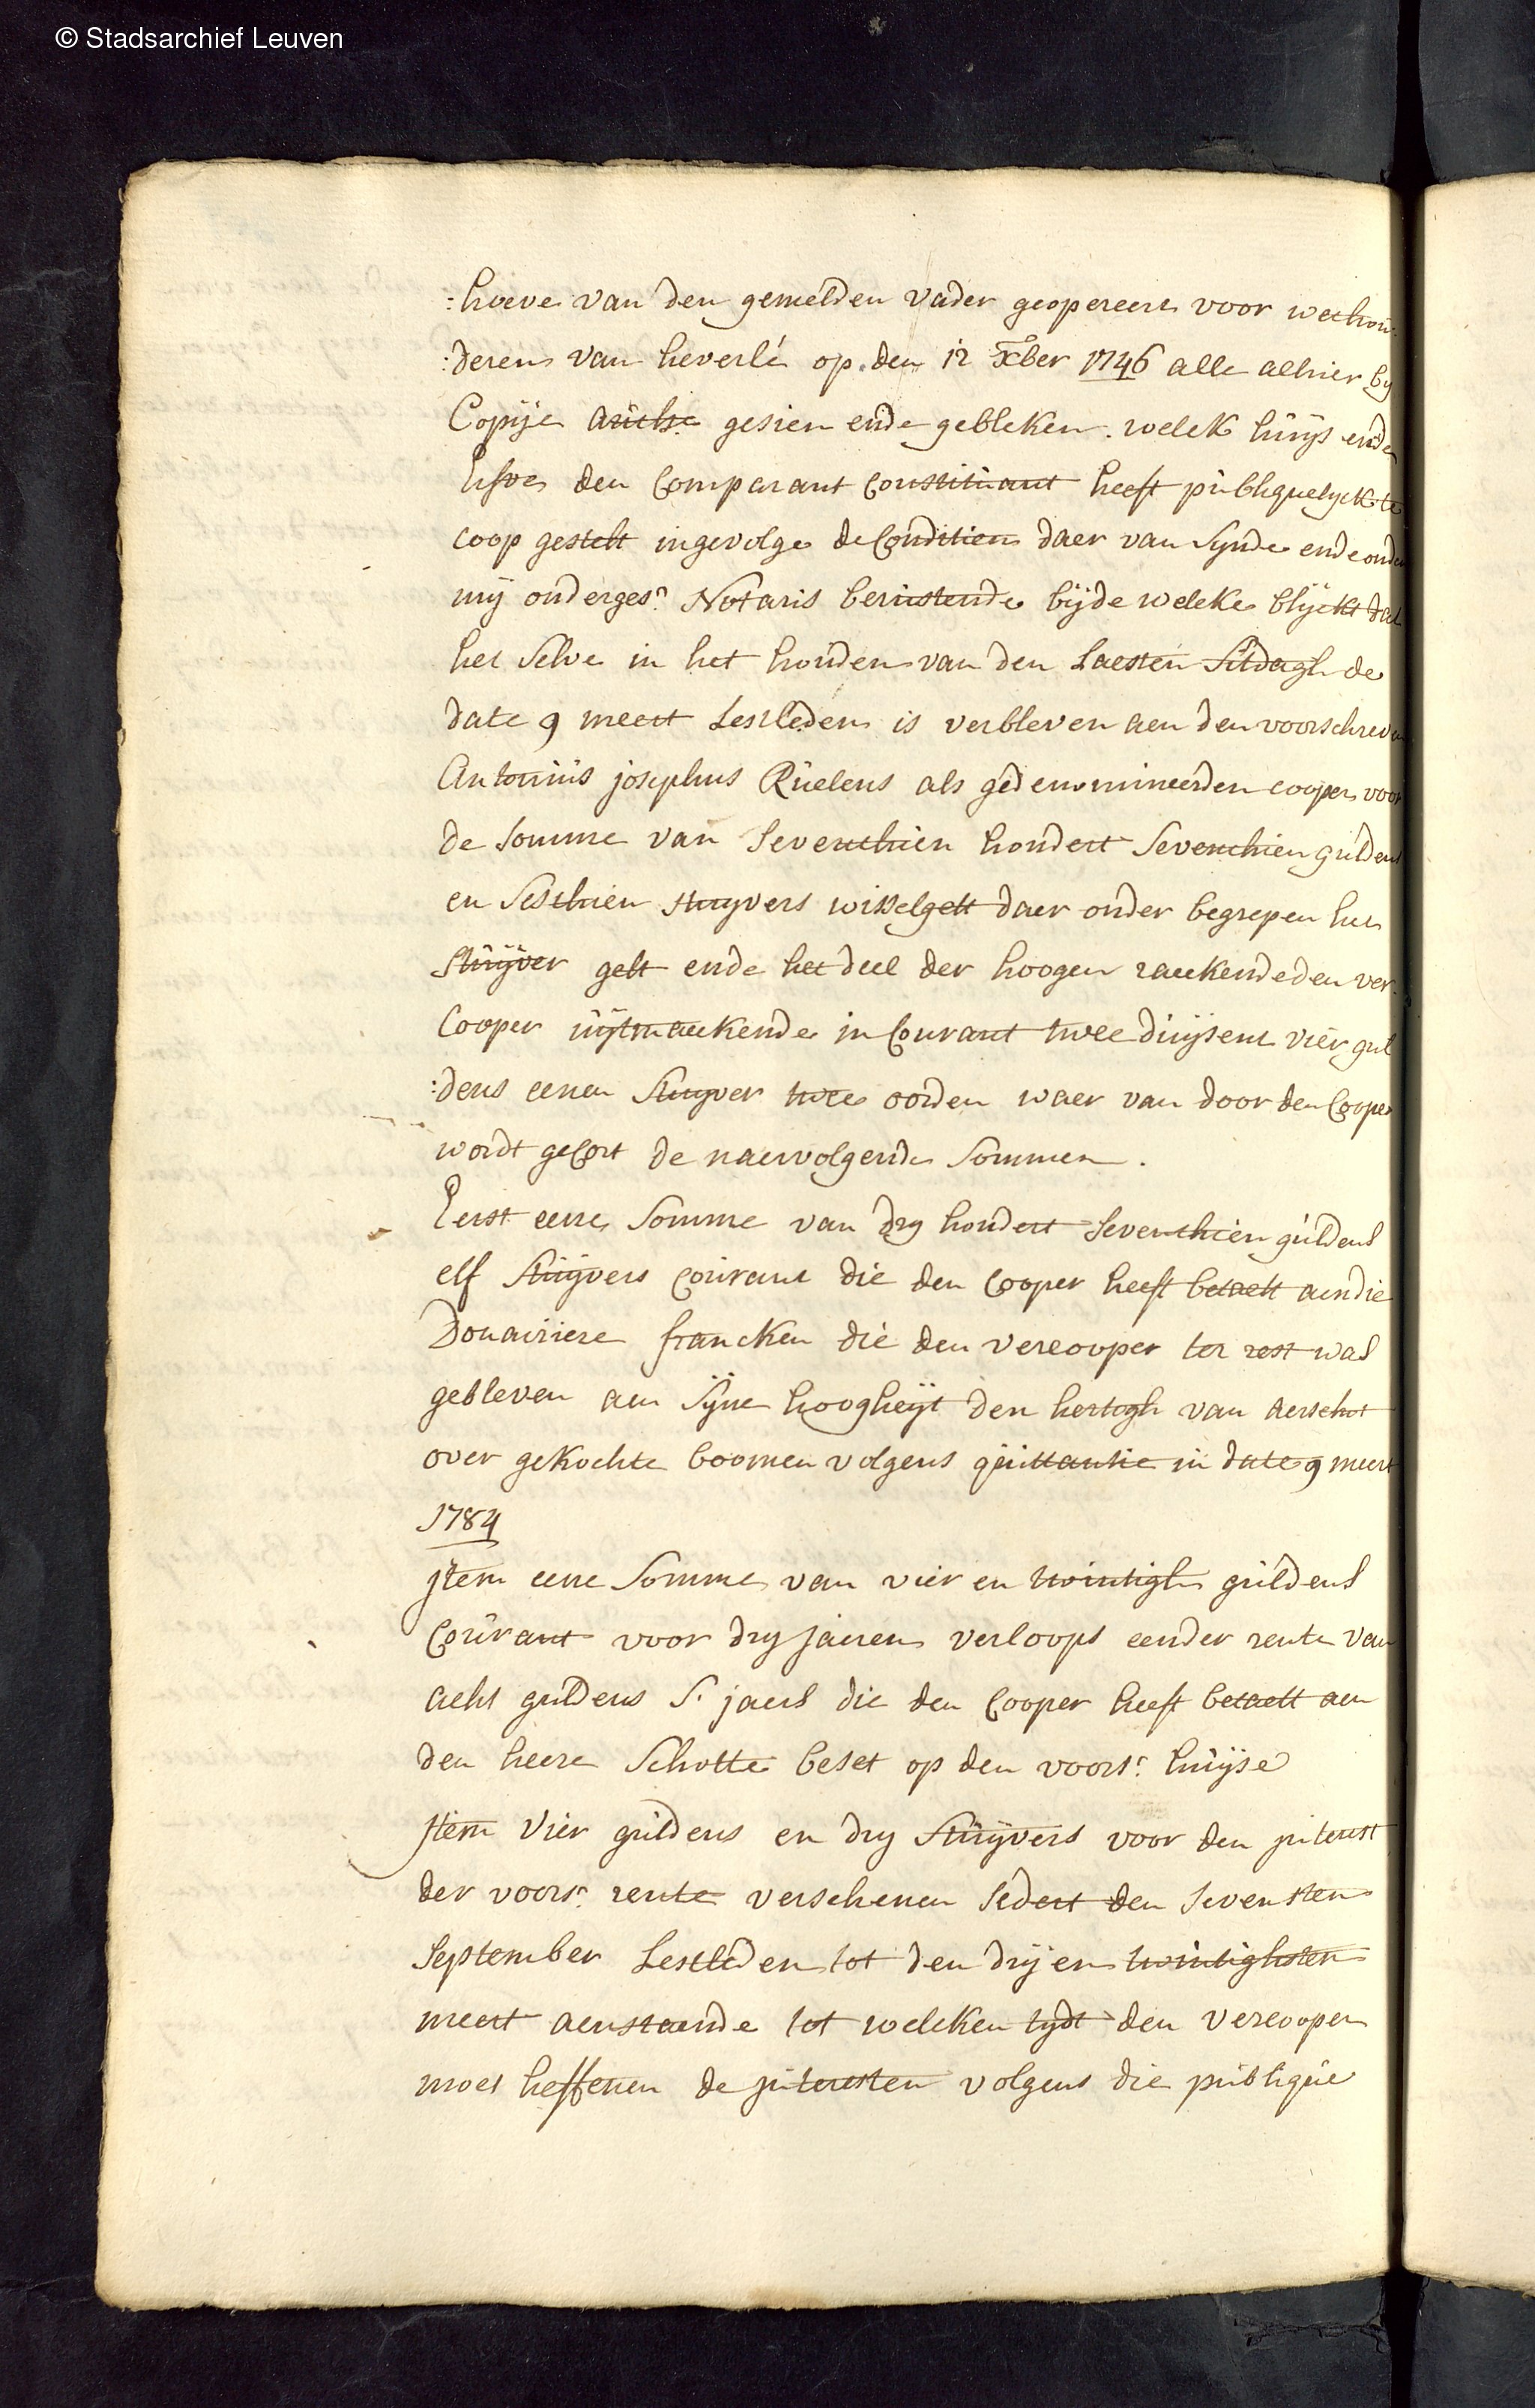 © Stadsarchief Leuven
:hoeve van den gemelden vader geopereert voor wethou:
:derens van heverlé op den 12 xber 1746 alle alhier by
Copije gesien ende gebleken. welck huijs ende
hove den Comparant Constituant heeft publiquelyck te
coop gestelt ingevolge de Conditien daer van synde ende onder
mij onderges: Notaris berustende bijde welcke blijckt dat
het selve in het houden van den Laesten Sitdagh de
date 9 meert Lestleden is verbleven aen den voorschreven
Antonius josephus Ruelens als gedenomineerden cooper voor
de somme van Seventhien hondert Seventhien guldens
en Sesthien stuyvers wisselgelt daer onder begrepen het
stuijver gelt ende het deel der hoogen raeckende den ver:
Cooper uijtmaeckende in Courant twee duijsent vier gul
:dens eenen Stuyver twee oorden waer van door den Cooper
wordt geCort de naervolgende Sommen.
Eerst eene Somme van dry hondert Seventhien guldens
elf Stuijvers Courant die den Cooper heeft betaelt aen die
Douairiere francken die den vercooper ter rest was
gebleven aen Syne hoogheijt den hertogh van Aerschot
over gekochte boomen volgens quittantie in date 9 meert
1784
jtem eene Somme van vier en twintigh guldens
Courant voor dry jaeren verloops eender rente van
acht guldens S. jaers die den Cooper heeft betaelt aen
den heere Schotte beset op den voors: huijse
jtem vier guldens en dry Stuijvers voor den jnterest
der voors: rente verschenen sedert den Sevensten
September Lestleden tot den dryen twintighsten
meert aenstaende tot welcken tydt den vercooper
moet heffenen de jnteresten volgens die publique